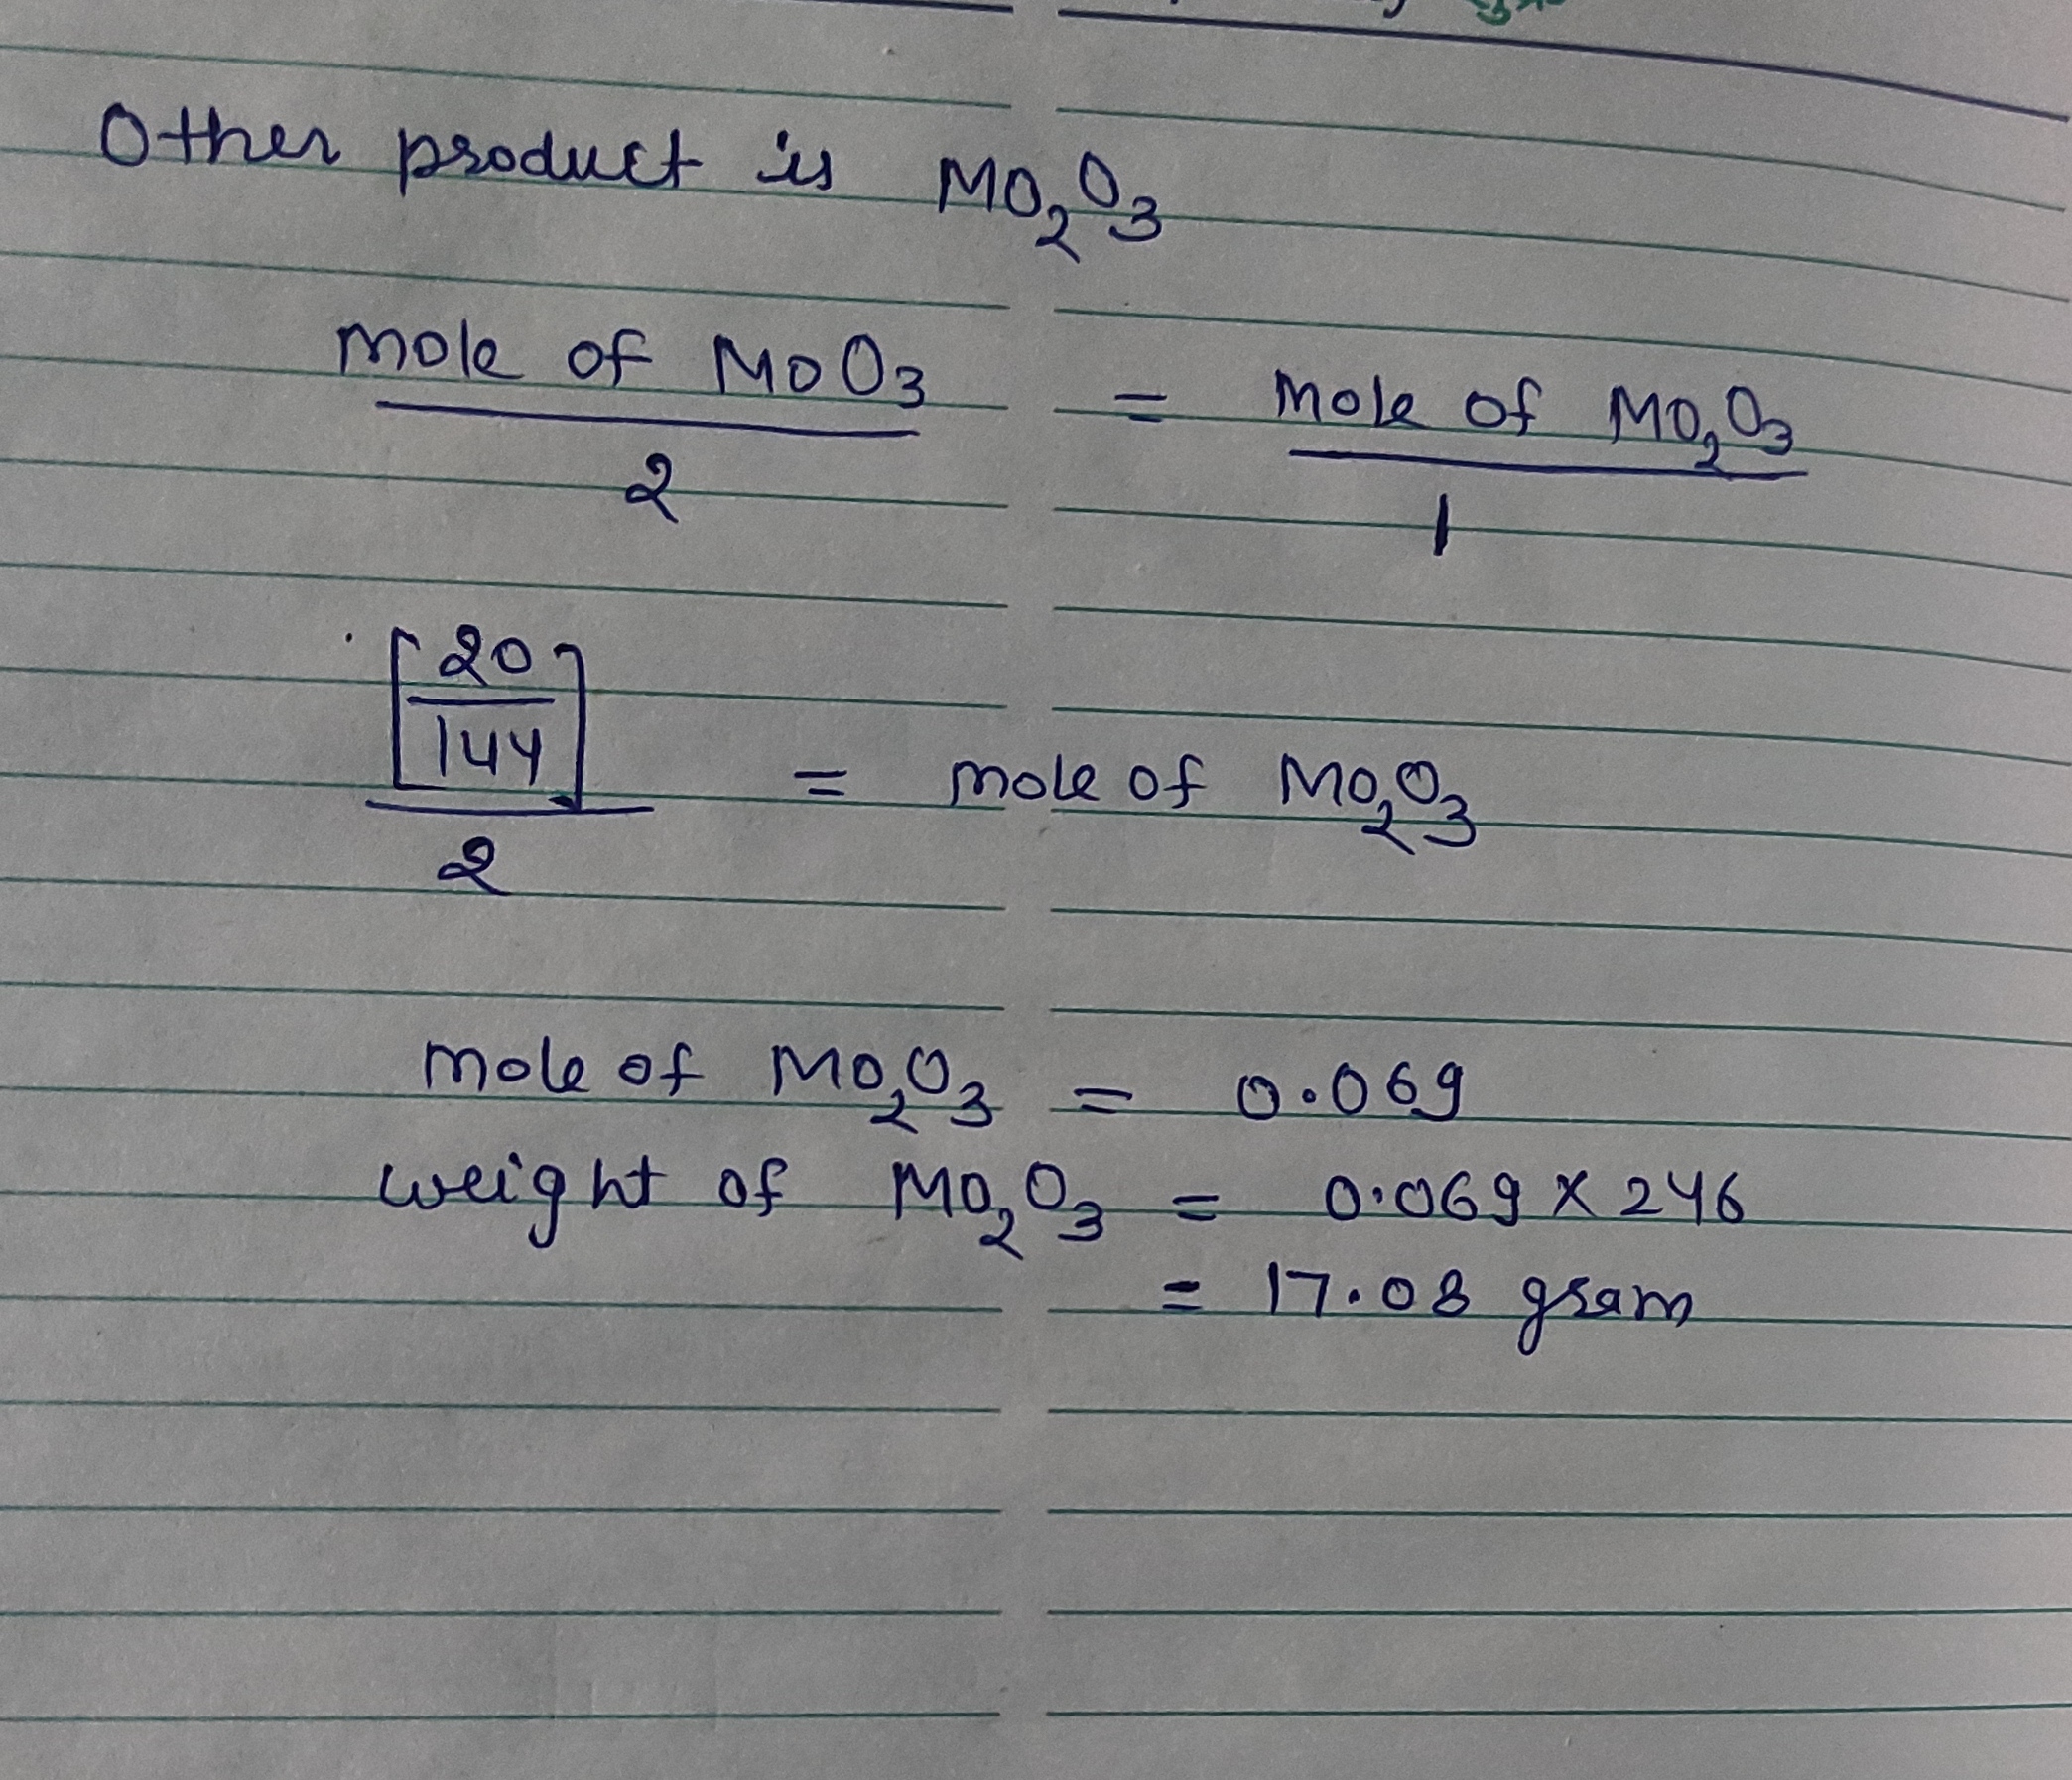 Other product is Mo₂O₃
mole of MoO₃ / 2 = mole of Mo₂O₃ / 1
[20/144] / 2 = mole of Mo₂O₃
mole of Mo₂O₃ = 0.069
weight of Mo₂O₃ = 0.069 × 246
= 17.08 gram